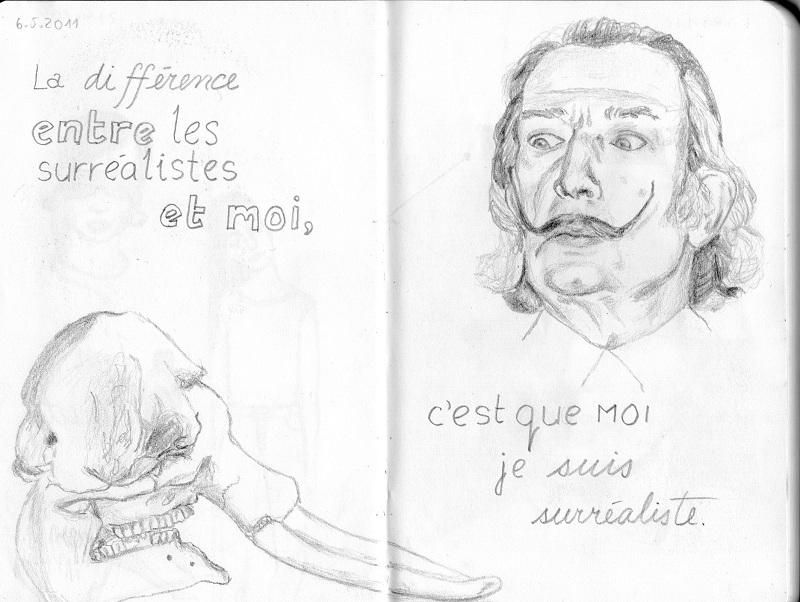 6.5.2011
La différence
entre les
surréalistes
et moi,
c'est que MOI
je suis
surréaliste.